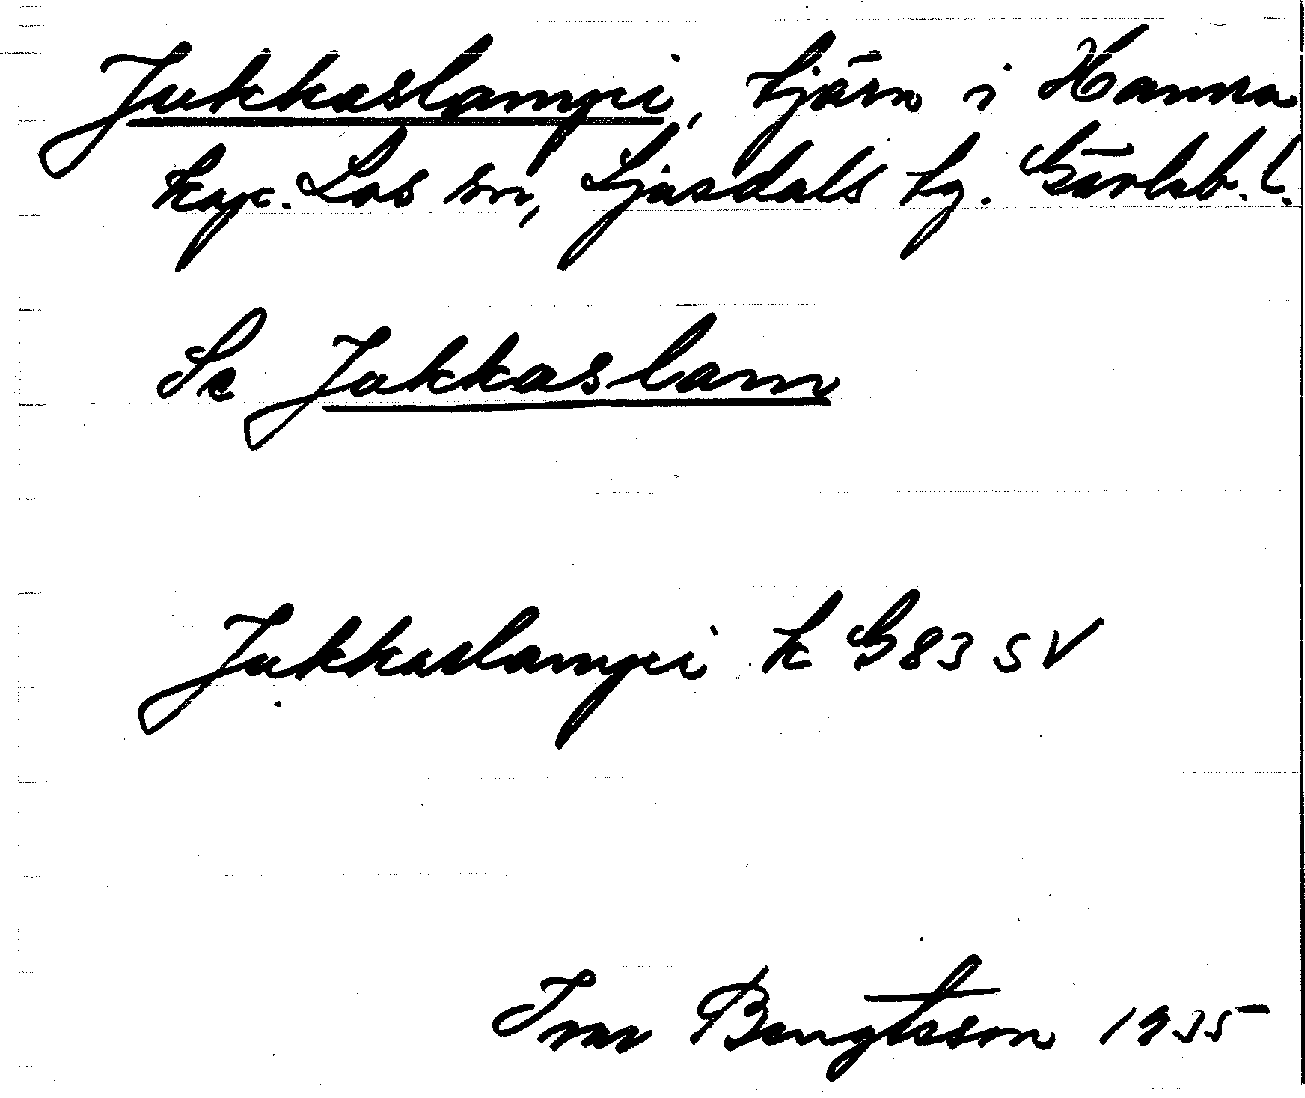 Jukkaslampi, tjärn i Hamra
kap. Los sn, Ljusdals tg. Gävleb. l.
Se Jukkaslam
Jukkaslampi k G83 SV
Ivar Bengtsson 1935